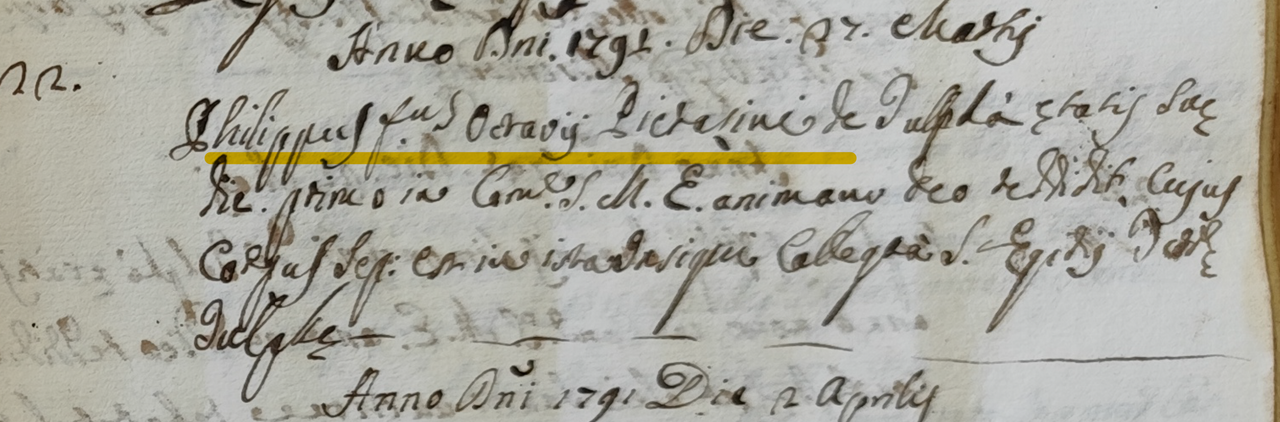 Anno Dni. 1791. Die. 27. Martij
22.
Philippus f.us Octavij Pietrasini de Tulphà ętatis suę
die. primo in Com.e S. M. E. animam deo reddidit. Cujus
Corpus Sep: est in ista Insigni Collegtà S. Egidij
Tulphę
Anno Dni 1791 Die 2 Aprilis